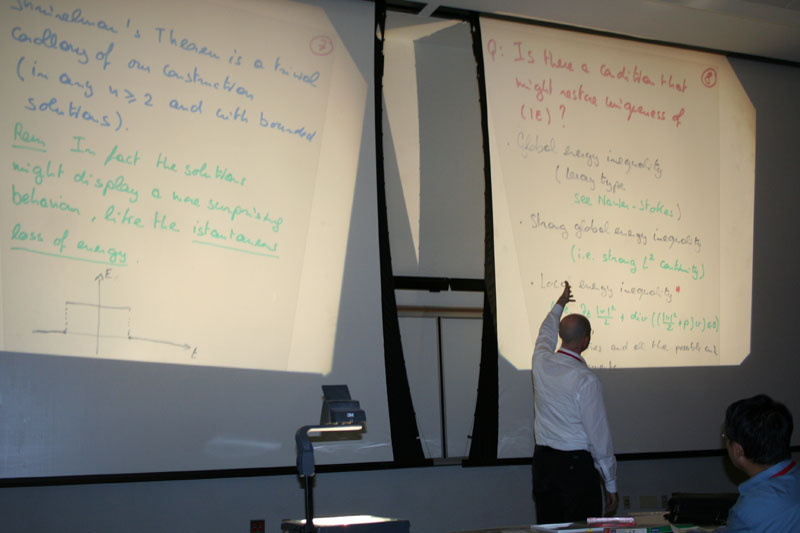 Shnirelman's Theorem is a trivial
corollary of our construction
(in any n ≥ 2 and with bounded
solutions).
7
Rem In fact the solutions
might display a more surprising
behavior, like the istantaneous
loss of energy.
E
t
Q: Is there a condition that
might restore uniqueness of
(IE) ?
8
· Global energy inequality
(Leray type
see Navier-Stokes)
· Strong global energy inequality
(i.e. strong L² continuity)
· Local energy inequality
∂t |v|²/2 + div ((|v|²/2 + p) v) ≤ 0)
and all the possible